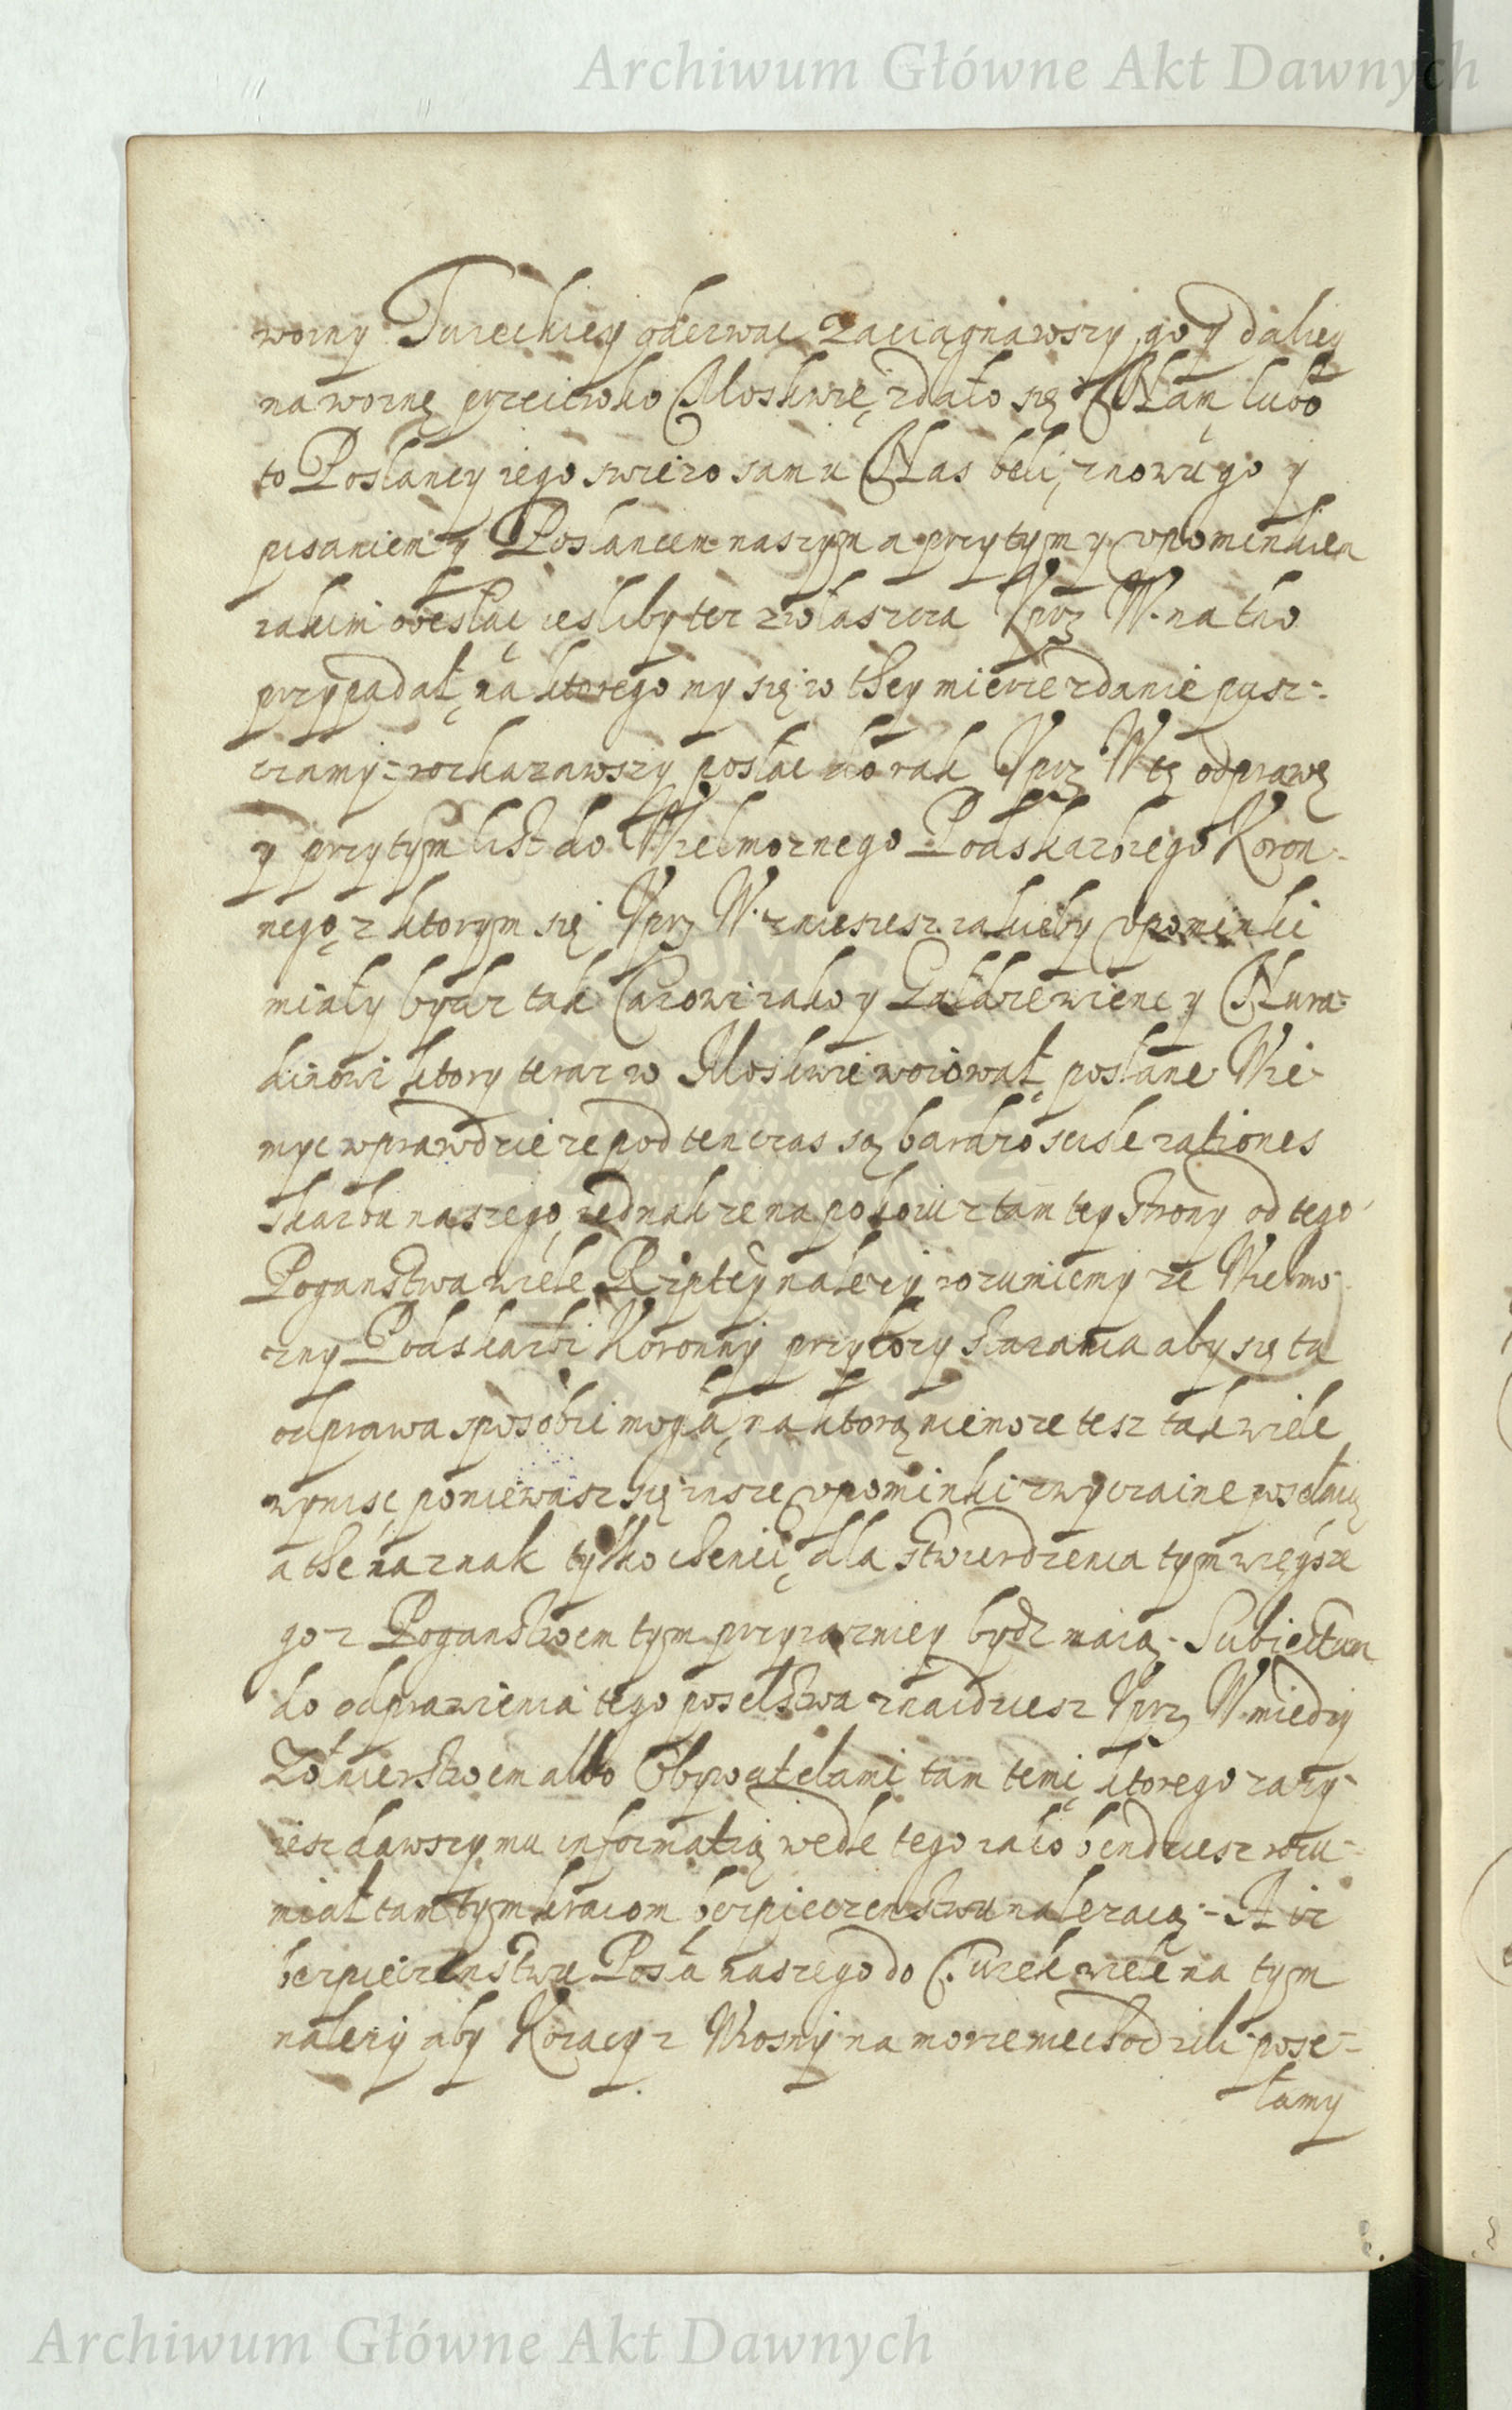 Archiwum Główne Akt Dawnych
woiny Tureckiey oderwac zaciągnawszy go y daliey
na woinę przeciwko Moskwie, zdało się Nam lubo
to Poslancy iego swiezo sam u Nas beli, znowu go y
pisaniem y Poslancem naszym a przytym y vpominkiem
iakim obeslac iesliby tez zwlaszcza Vprz W. na to
przypadał, na ktorego my się w they mierze zdanie pusz-
czamy: roskazawszy poslac do rak Vprz W tę odprawę
y przytym list do Wielmoznego Podskarbiego Koron-
nego, z ktorym się Vprz W. zniesiesz iakieby vpominki
miały bydz tak Carowi iako y Gałdze wienc y Nura-
dinowi ktory teraz w Moskwie woiował, poslane Wie-
myc wprawdzie ze pod ten czas są bardzo scisle rationes
skarbu naszego, iednak ze na pokoiu z tam tey strony od tego
Poganstwa wiele Rzptey nalezy rozumiemy ze Wielmo-
zny Podskarbi Koronny przylozy starania aby się ta
odprawa sposobic mogła, na ktorą nie moze tesz tak wiele
wynisc poniewasz się insze vpominki zwyczaine posełaią
a the na znak tylko chenci, dla stwierdzenia tym więgsze
go z Poganstwem tym przyiazniey bydz maią. Subiectum
do odprawienia tego poselstwa znaidziesz Vprz W. miedzy
Zołnierstwem albo Obywatelami tam temi, ktorego zazy-
iesz dawszy mu informatią wedle tego iako bendziesz rozu-
miał tam tym kraiom bezpieczenstwu nalezacą. A iz
bezpieczenstwu Posła naszego do Turek wiele na tym
nalezy aby Kozacy z Wiosny na morze niechodzili pose-
łamy
Archiwum Główne Akt Dawnych